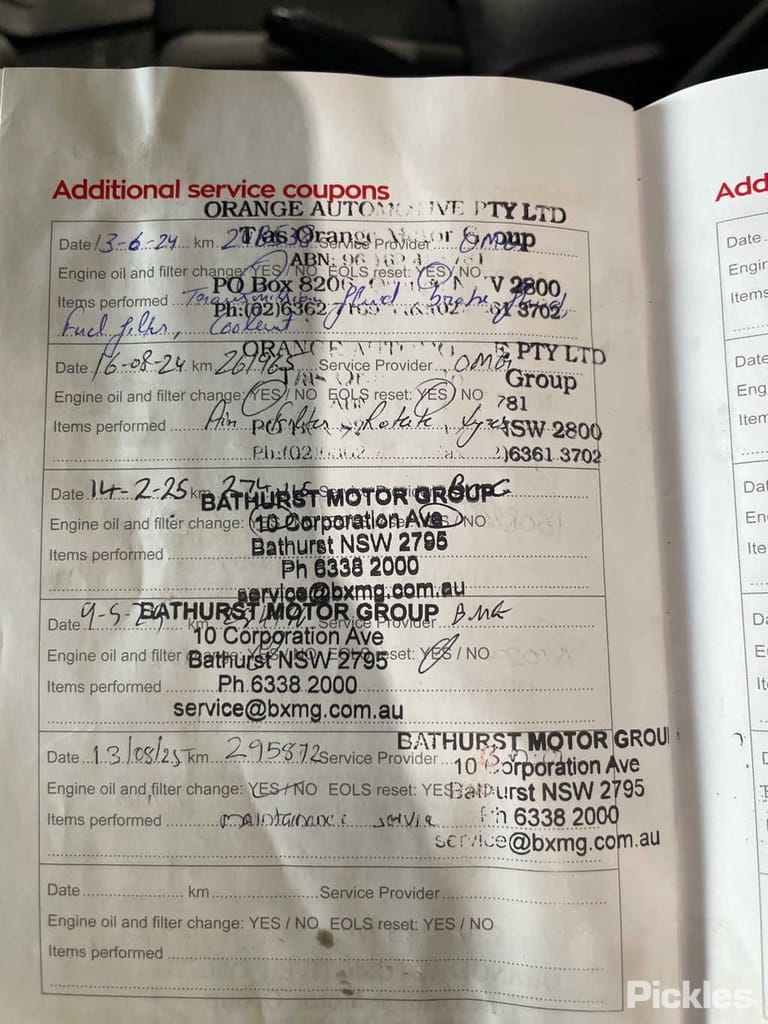 Additional service coupons
ORANGE AUTOMOTIVE PTY LTD
T/as Orange Motor Group
Date 13-6-24 km Service Provider OMG
ABN:
Engine oil and filter change: YES / NO EOLS reset: YES / NO
PO Box NSW 2800
Items performed Transmission fluid, brake fluid,
Ph:(02)6362 6361 3702
Fuel filter, Coolant
ORANGE AUTOMOTIVE PTY LTD
Date 16-08-24 km 261965 Service Provider OMG
Group
Engine oil and filter change: YES / NO EOLS reset: YES / NO
781
Items performed Air filter, Rotate tyres
NSW 2800
Ph:(02)6362 6361 3702
Date 14-2-25 km Service Provider BMG
BATHURST MOTOR GROUP
Engine oil and filter change: YES / NO EOLS reset: YES / NO
10 Corporation Ave
Bathurst NSW 2795
Items performed
Ph 6338 2000
service@bxmg.com.au
BATHURST MOTOR GROUP
Date 9-5-25 km Service Provider BMG
10 Corporation Ave
Engine oil and filter change: YES / NO EOLS reset: YES / NO
Bathurst NSW 2795
Items performed
Ph 6338 2000
service@bxmg.com.au
BATHURST MOTOR GROU
Date 13/08/25 km 295872 Service Provider
10 Corporation Ave
Engine oil and filter change: YES / NO EOLS reset: YES
Bathurst NSW 2795
Items performed maintainance service
Ph 6338 2000
service@bxmg.com.au
Date km Service Provider
Engine oil and filter change: YES / NO EOLS reset: YES / NO
Items performed
Add
Date
Engin
Items
Date
Eng
Item
Dat
En
Ite
Da
E
It
Pickles